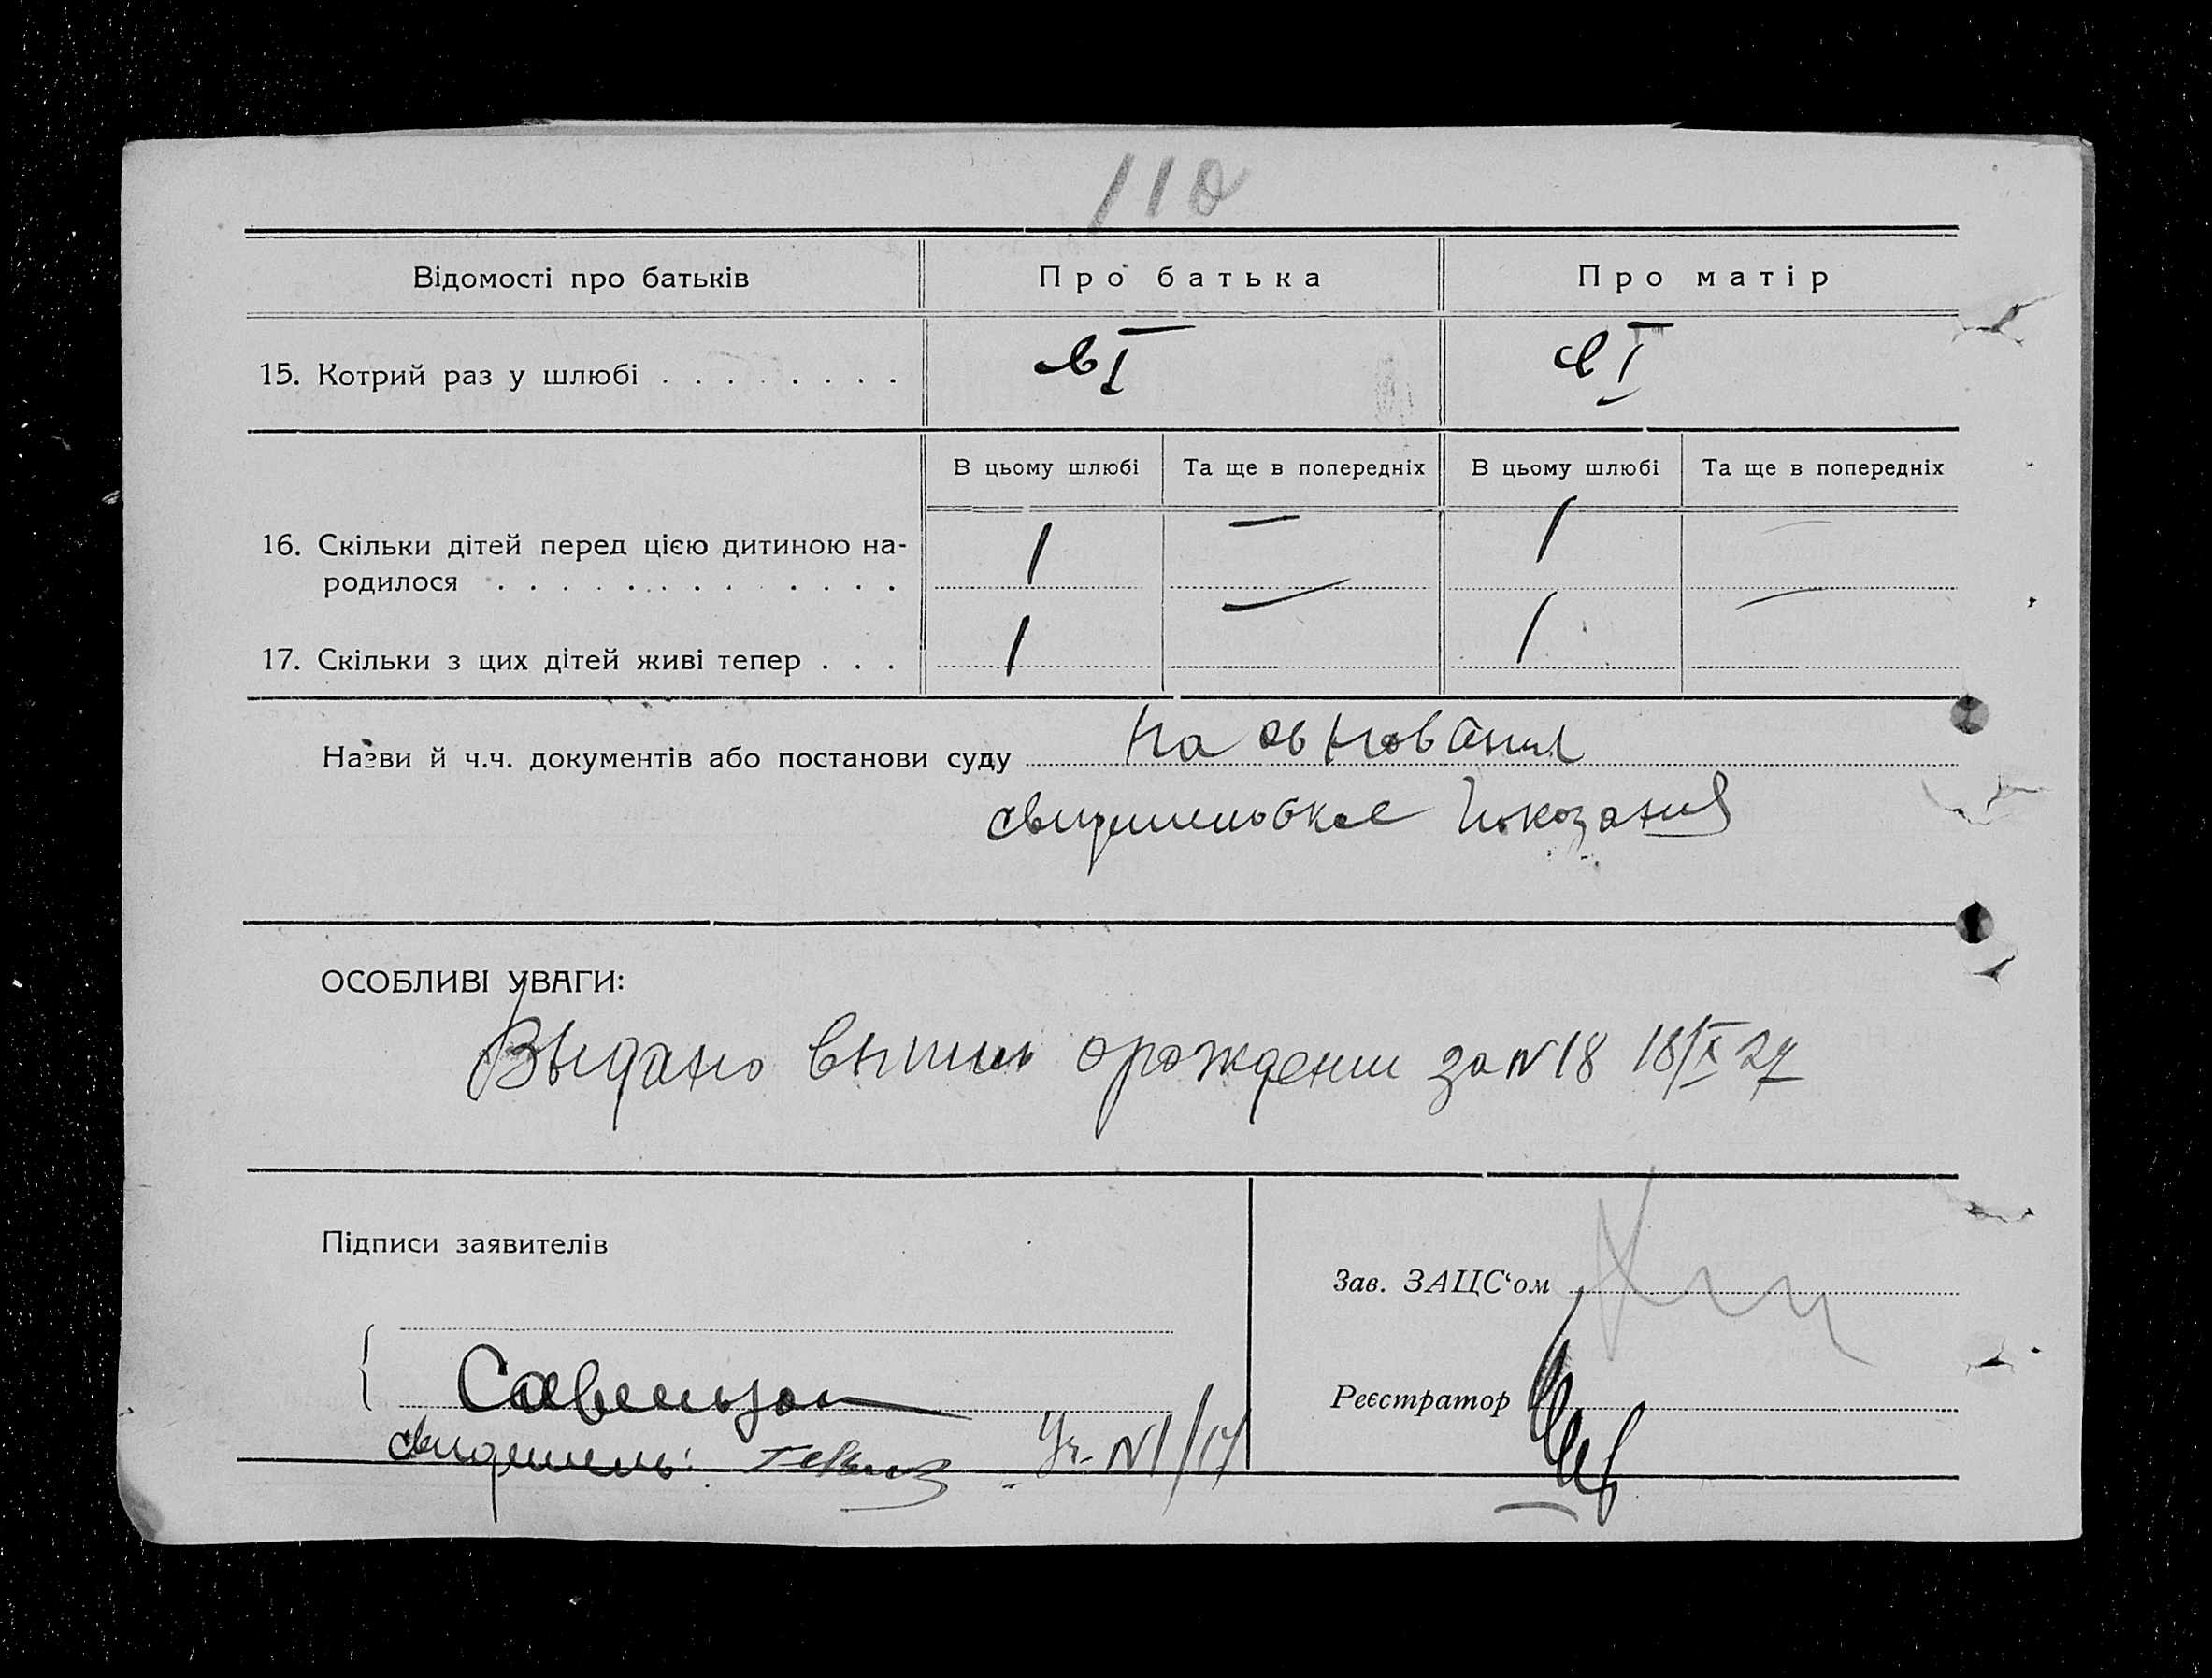 110
Відомості про батьків Про батька Про матір
15. Котрий раз у шлюбі . . . . . . . . в I в I
В цьому шлюбі Та ще в попередніх В цьому шлюбі Та ще в попередніх
16. Скільки дітей перед цією дитиною на-
родилося . . . . . . . . . . . . . 1 — 1 —
17. Скільки з цих дітей живі тепер . . . 1 — 1 —
Назви й ч.ч. документів або постанови суду На основания
свидетельское показания
ОСОБЛИВІ УВАГИ:
Выдано выпись о рождении за N 18 18/IX 27
Підписи заявителів
Зав. ЗАЦС‘ом
Реєстратор
свидетель: